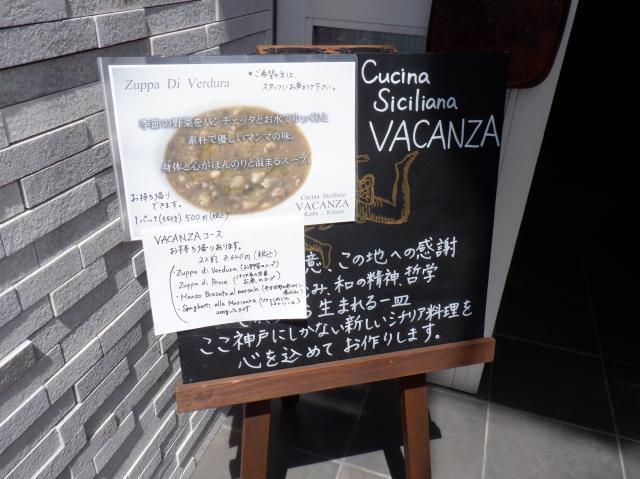 Zuppa Di Verdura
*ご希望の方は、
スタッフにお声がけ下さい。
季節の野菜をパンチェッタとお水でゆっくりと
素朴で優しいマンマの味。
身体と心がほんのりと温まるスープ。
お持ち帰り
できます。
1パック(450g) 500円(税込)
Cucina Siciliana
VACANZA
Kobe , Kitano
VACANZA コース
お持ち帰りあります。
2人前 8,640円(税込)
・Zuppa di Verdura
・Zuppa di
・Manzo Brasato al marsala
・Spaghetti alla Marinara
Cucina
Siciliana
VACANZA
意、この地への感謝
み、和の精神、哲学
生まれる一皿
ここ神戸にしかない新しいシチリア料理を
心を込めてお作りします。